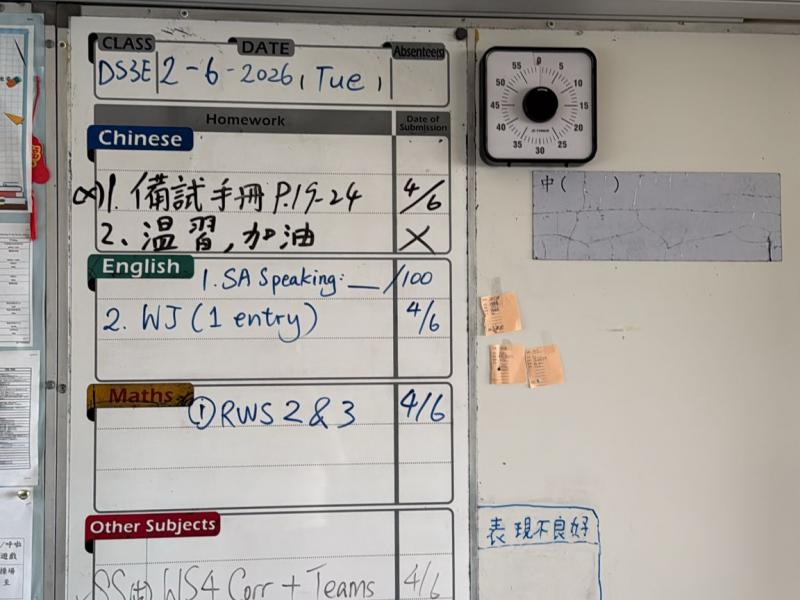 CLASS DATE Absentees
DS3E 2-6-2026, Tue,
Homework Date of Submission
Chinese
1. 備試手冊 P.19-24 4/6
2、溫習,加油 X
English
1. SA Speaking: __/100
2. WJ (1 entry) 4/6
Maths
① RWS 2 & 3 4/6
Other Subjects
WS4 Corr + Teams 4/6
0 5 10 15 20 25 30 35 40 45 50 55
中( )
表現不良好